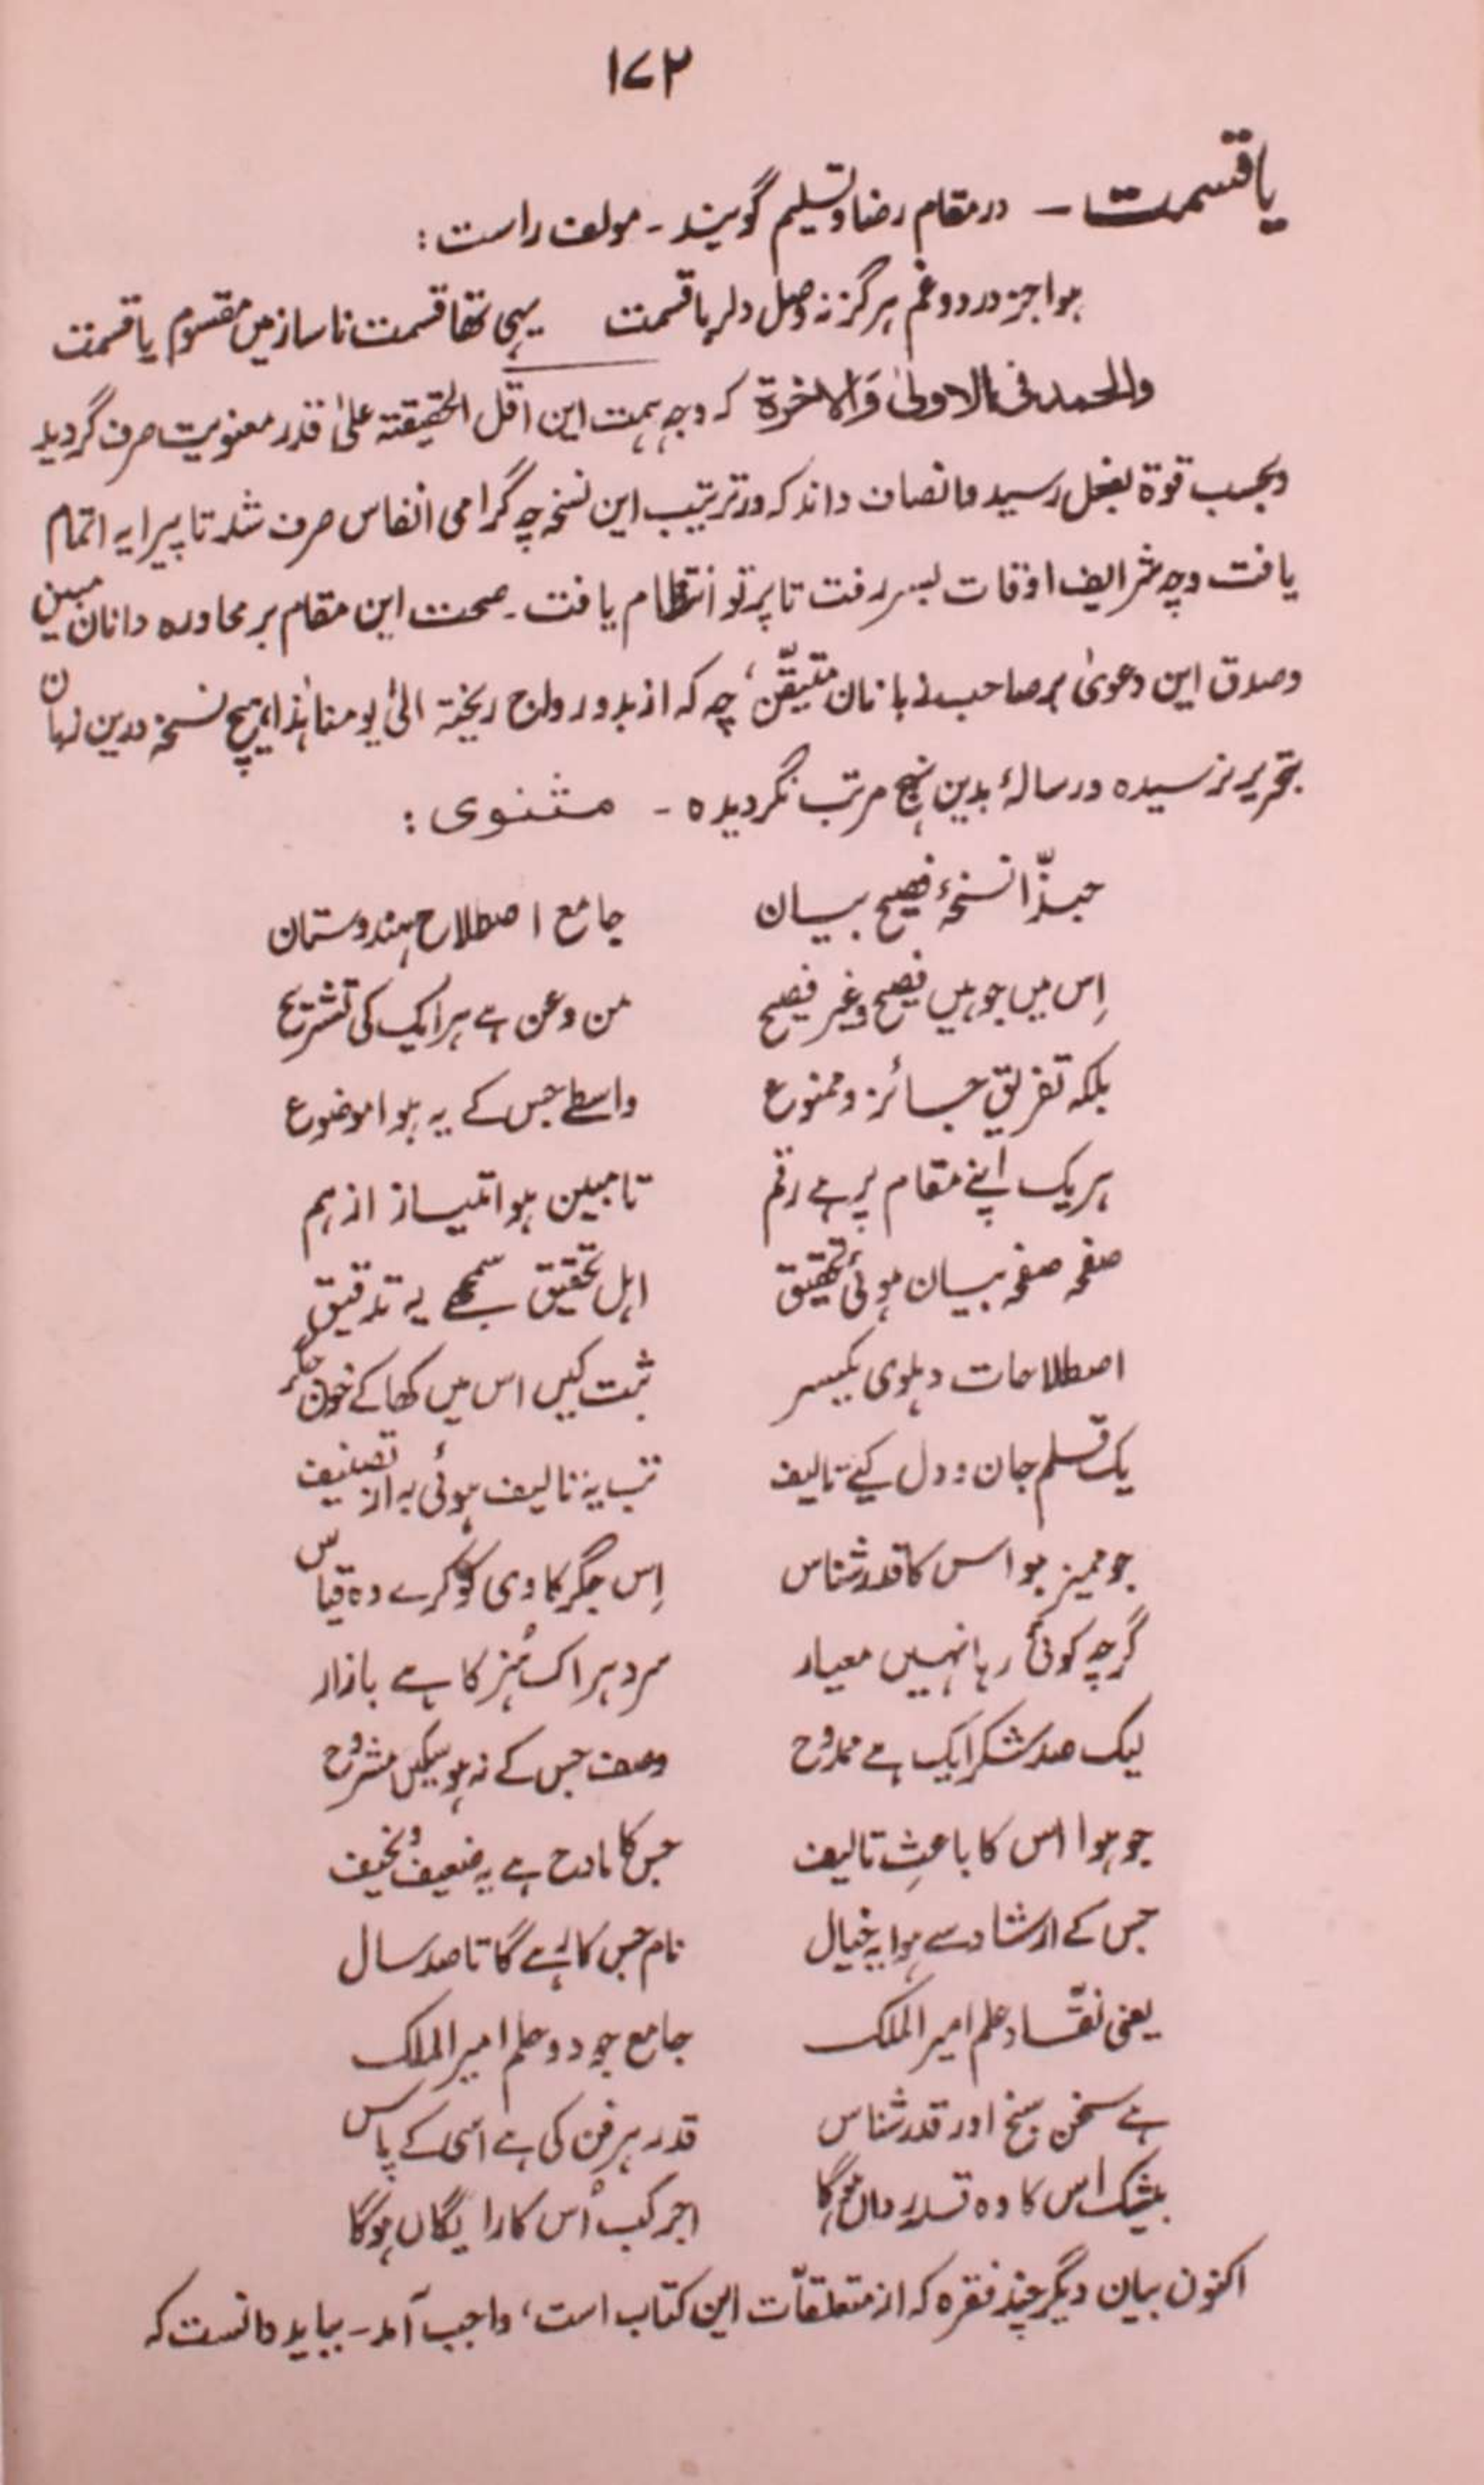 ۱۷۲
یا قسمت ـ در مقام رضا و تسلیم گویند ـ مولف راست :
ہوا جز درد و غم ہرگز نہ وصل دلر یا قسمت یہی تھا قسمت ناساز میں مقسوم یا قسمت
والحمد فی الاولیٰ وَالاٰخرۃ کہ وجہ ہمت این اقل الحقیقۃ علیٰ قدر معنویت صرف گردید
وبحسب قوۃ بفعل رسید وانصاف داند کہ در ترتیب این نسخہ چہ گرامی انفاس صرف شد تا پیرایہ اتمام
یافت وچہ شرایف اوقات بسر رفت تا پرتو انتظام یافت ـ صحت این مقام بر محاورہ دانان مبین
وصدق این دعویٰ بر صاحب زبانان متیقّن، چہ کہ از بدو رواج ریختہ الیٰ یومنا ہٰذا ہیچ نسخہ درین زبان
بتحریر نرسیدہ و رسالۂ بدین نہج مرتب نگردیدہ ـ مثنوی :
حبذّا نسخۂ فصیح بیان جامع اصطلاح ہندوستان
اِس میں جو ہیں فصیح وغیر فصیح من وعن ہے ہر ایک کی تشریح
بلکہ تفریق جائز و ممنوع واسطے جس کے یہ ہوا موضوع
ہریک اپنے مقام پر ہے رقم تا مبین ہو امتیاز از ہم
صفحہ صفحہ بیان ہوئی تحقیق اہل تحقیق سمجھے یہ تدقیق
اصطلاحات دہلوی یکسر ثبت کیں اس میں کھا کے خون جگر
یک قلم جان و دل کیے تالیف تب یہ تالیف ہوئی بہ از تصنیف
جو ممیز ہو اس کا قدر شناس اِس جگر کاوی کو کرے وہ قیاس
گرچہ کوئی رہا نہیں معیار سرد ہر اک ہُنر کا ہے بازار
لیک صد شکر ایک ہے ممدوح وصف جس کے نہ ہو سکیں مشروح
جو ہوا اس کا باعثِ تالیف جس کا مادح ہے یہ ضعیف و نحیف
جس کے ارشاد سے ہوا یہ خیال نام جس کا رہے گا تا صد سال
یعنی نقّاد علم امیر الملک جامع جود و حلم امیر الملک
ہے سخن سنج اور قدر شناس قدر ہر فن کی ہے اسی کے پاس
بیشک اس کا وہ قدر داں ہوگا اجر کب اُس کا رایگاں ہوگا
اکنون بیان دیگر چند فقرہ کہ از متعلقاّت این کتاب است، واجب آمد ـ بباید دانست کہ